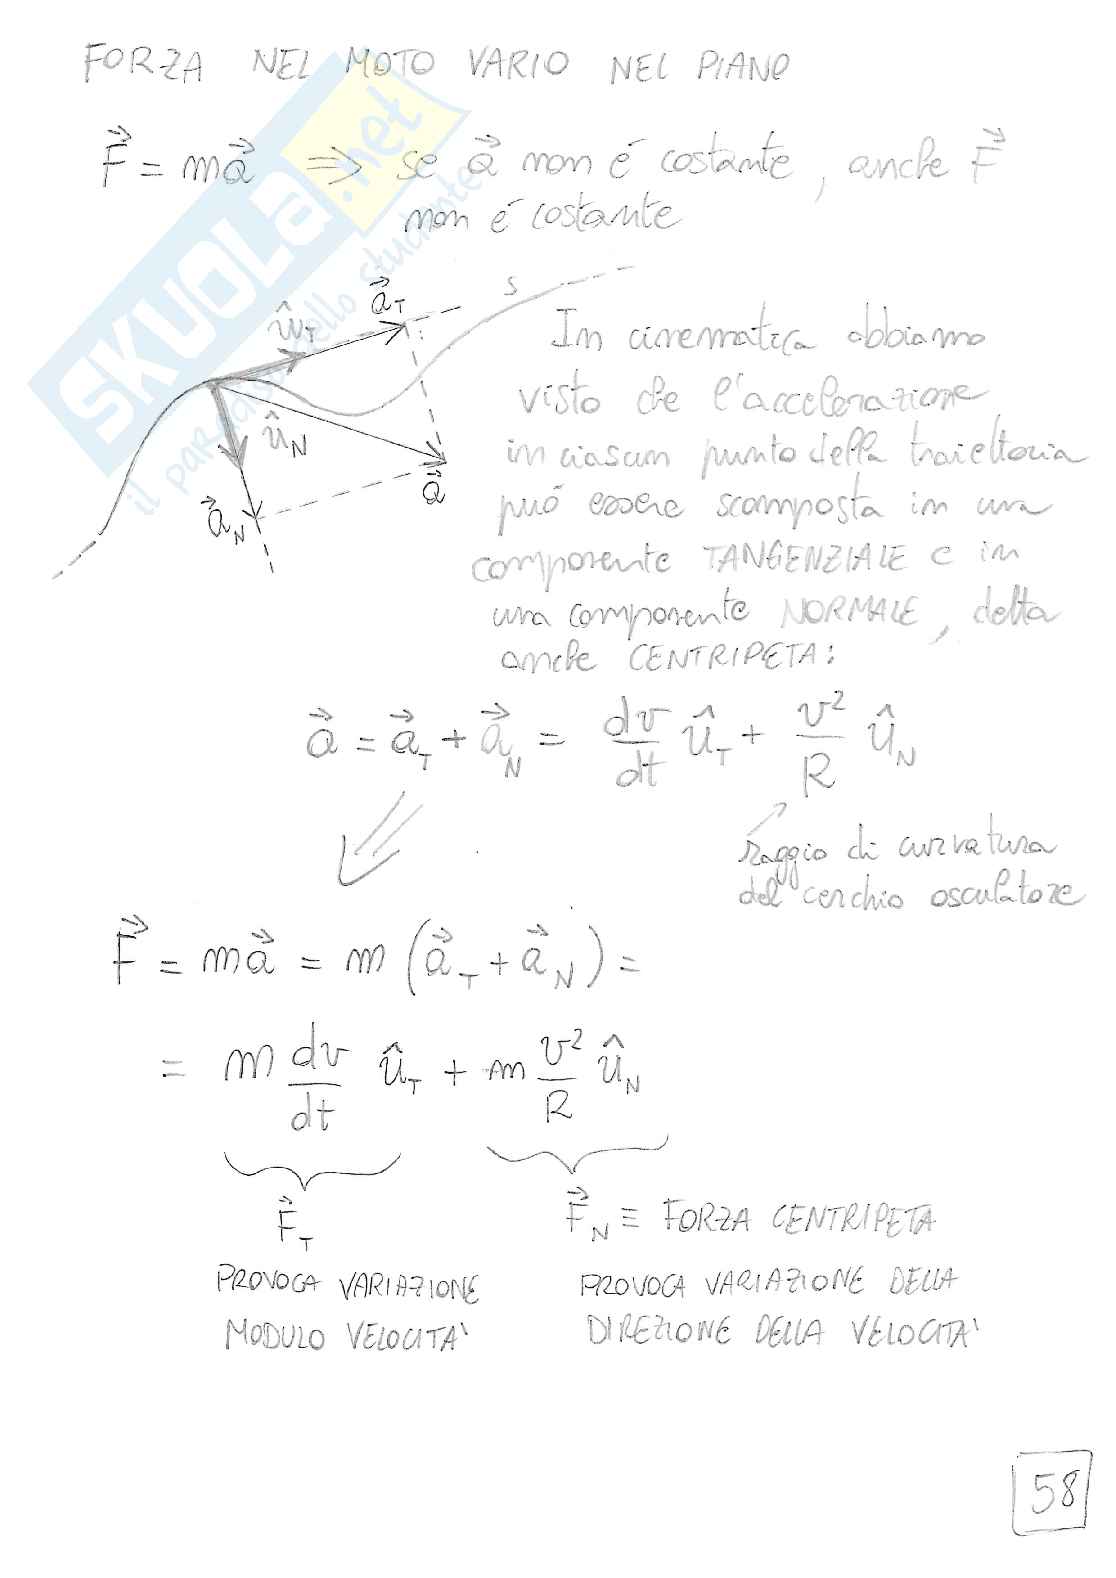 FORZA NEL MOTO VARIO NEL PIANO
F⃗ = ma⃗ ⇒ se a⃗ non é costante, anche F⃗
non é costante
SKUOLA.net
il paradiso dello studente
S
a⃗_T
û_T
û_N
a⃗
a⃗_N
In cinematica abbiamo
visto che l'accelerazione
in ciascun punto della traiettoria
puó essere scomposta in una
componente TANGENZIALE e in
una componente NORMALE, detta
anche CENTRIPETA:
a⃗ = a⃗_T + a⃗_N = dv/dt û_T + v²/R û_N
raggio di curvatura
del cerchio osculatore
F⃗ = ma⃗ = m (a⃗_T + a⃗_N) =
= m dv/dt û_T + m v²/R û_N
F⃗_T
F⃗_N ≡ FORZA CENTRIPETA
PROVOCA VARIAZIONE
MODULO VELOCITA'
PROVOCA VARIAZIONE DELLA
DIREZIONE DELLA VELOCITA'
58